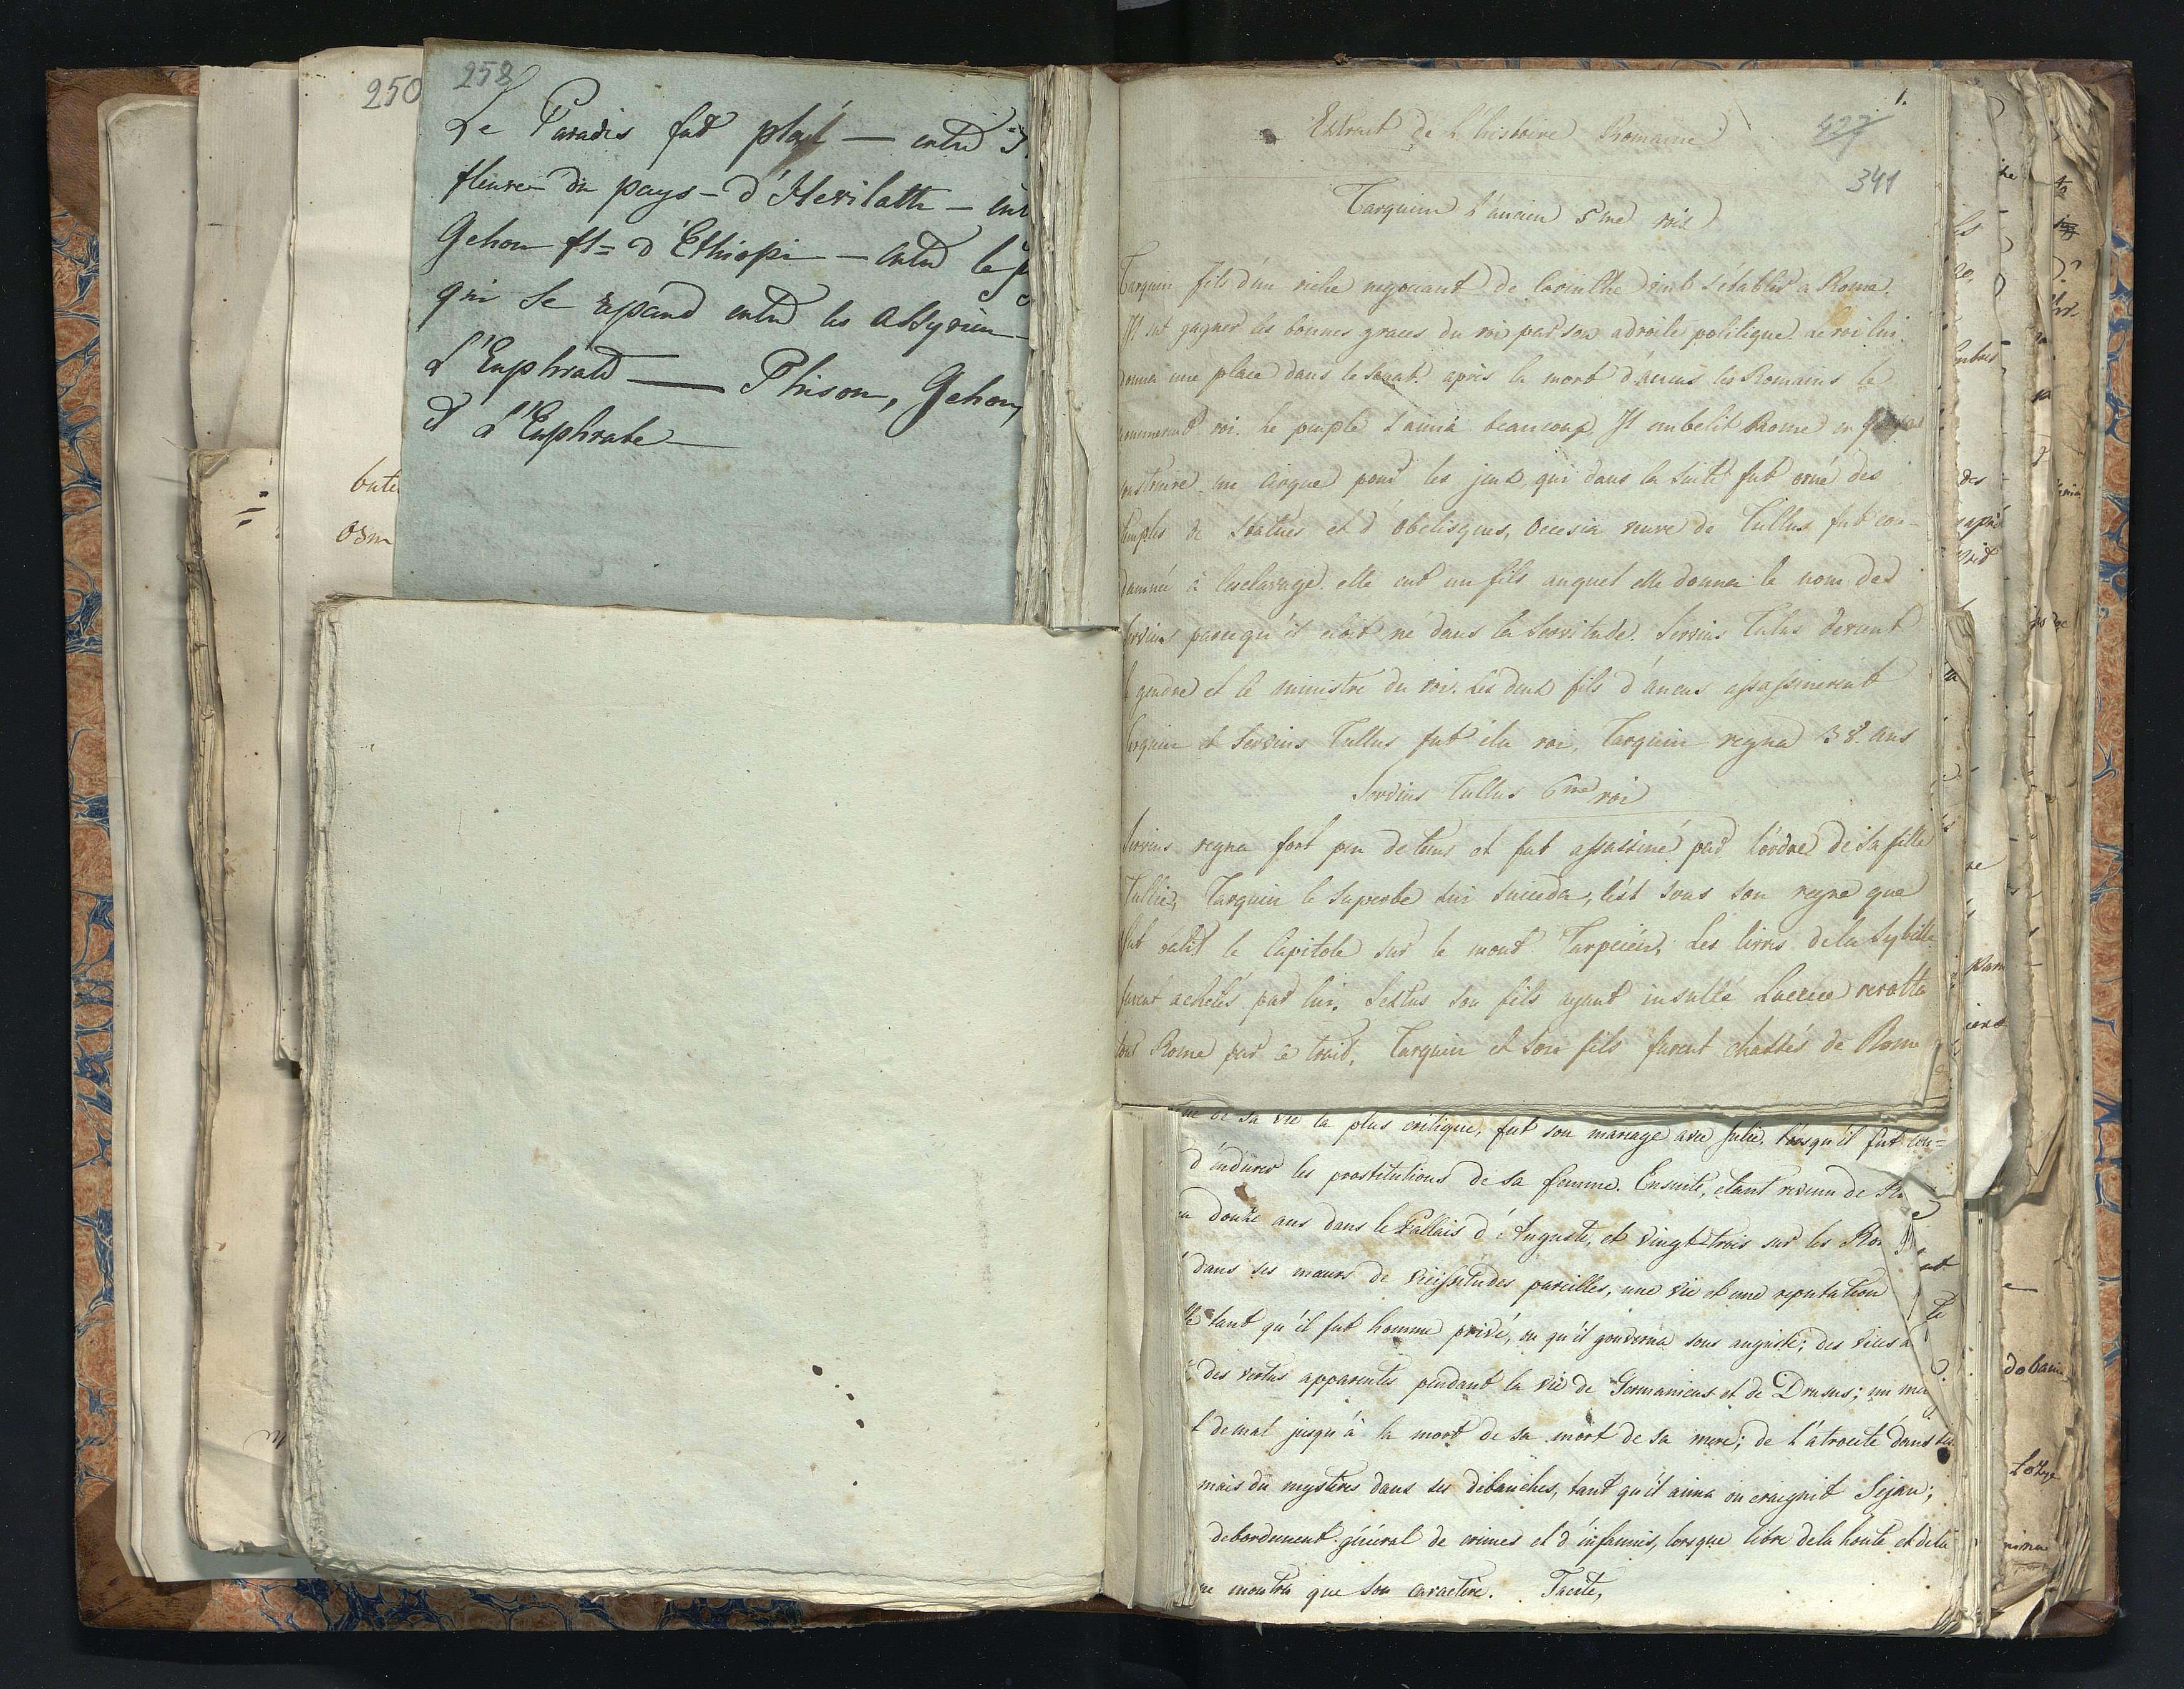 250
258
Le Paradis fut placé — entre
fleuve du pays - d'Hevilath —
Gehon fl= d'Ethiopi — entre le
qui se repand entre les Assyriens
L'Euphrate — Phison, Gehon,
et L'Euphrate —
1.
427
341
Extrait de L'histoire Romaine
Tarquin L'ancien 5me roi
Tarquin fils d'un riche negociant de Corinthe vint s'établir a Rome.
Il sut gagner les bonnes graces du roi par son adroite politique. Le roi lui
donna une place dans le Senat. après la mort d'ancus les Romains le
nommerent roi. Le peuple L'aima beaucoup, Il embelit Rome en
construire un Cirque pour les jeux, qui dans la Suite fut orné des
temples de Statues et d'Obelisques, Ocresia veuve de Tullus fut con-
damnée à l'esclavage. elle eut un fils auquel elle donna le nom des
Servius parcequ'il etoit né dans la Servitude. Servius Tulus devint
le gendre et le ministre du roi. Les deux fils d'ancus assassinerent
Tarquin et Servius Tullus fut élu roi, Tarquin regna 38. ans
Servius Tullus 6me roi
Servius regna fort peu de tems et fut assassiné par l'ordre de sa fille
Tullie, Tarquin le Superbe lui succeda, c'est sous son regne que
fut batit le Capitole sur le mont Tarpeien, Les livres de la Sybille
furent achetés par lui, Sextus son fils ayant insulté Lucrece revolta
tout Rome par ce trait, Tarquin et son fils furent chassés de Rome
de sa vie la plus critique, fut son mariage avec Julie, lorsqu'il fut con=
d'endurer les prostitutions de sa femme. Ensuite, etant revenu de
douze ans dans le Pallais d'Auguste, et vingt-trois sur les
dans ses mœurs de vicissitudes pareilles, une vie et une reputation
tant qu'il fut homme privé, ou qu'il gouverna sous auguste; des vices
des vertus apparentes pendant la vie de Germanicus et de Drusus; un
de mal jusqu'à la mort de sa mort de sa mere; de L'atrocité dans
mais du mystères dans ses débauches, tant qu'il aima ou craignit Sejan;
debordement général de crimes et d'infamies, lorsque libre de la honte et de la
ne montra que son caractère. Tacite,